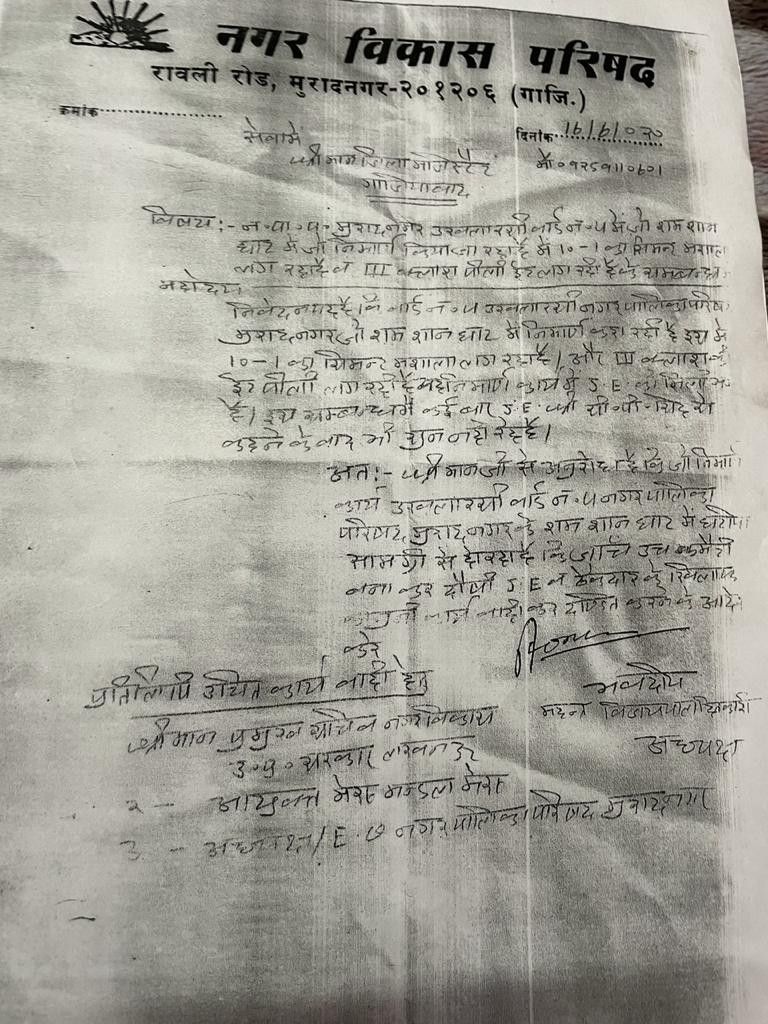 नगर विकास परिषद
रावली रोड, मुरादनगर-२०१२०६ (गाजि.)
क्रमांक
दिनांक 16/6/020
सेवामें
श्रीमान जिला मजिस्टेट मो०9259110601
गाजियाबाद
विषय:- न.पा.प. मुरादनगर उखलारसी वार्ड न.५ में जो शमशान
घाट में जो निर्माण किया जा रहा है में 10-1 का सिमेन्ट मशाला
लग रहा है व III क्लाश पीली ईट लग रही है के सम्बन्ध
महोदय
निवेदन यह है कि वार्ड न.५ उखलारसी नगरपालिका परिषद
मुरादनगर जो शमशान घाट में निर्माण करा रही है इस में
10-1 का सिमेन्ट मशाला लग रहा है। और III क्लास की
ईट पीली लग रही है यह निर्माण कार्य में J.E. की
है। इस सम्बन्ध में कई बार J.E. श्री सी.पी. सिंह से
कहने के बाद भी सुन नही रहे है।
अत:- श्रीमान जी से अनुरोध है कि जो निर्माण
कार्य उखलारसी वार्ड न.५ नगरपालिका
परिषद मुरादनगर के शमशान घाट में घटीया
सामग्री से हो रहा है कि जाँच उच्च कमेटी
बना कर दोषी J.E व ठेकेदार के खिलाफ
कानुनी कार्य वाही कर दण्डित करने के आदेश
करे
भवदीय
प्रतिलिपि उचित कार्य वाही हेतु
महन्त
अध्यक्ष
श्रीमान प्रमुख सचिव नगरविकास
उ.प्र. सरकार लखनऊ
2 - आयुक्त मेरठ मन्डल मेरठ
3 - अध्यक्ष/E.O नगरपालिका परिषद मुरादनगर